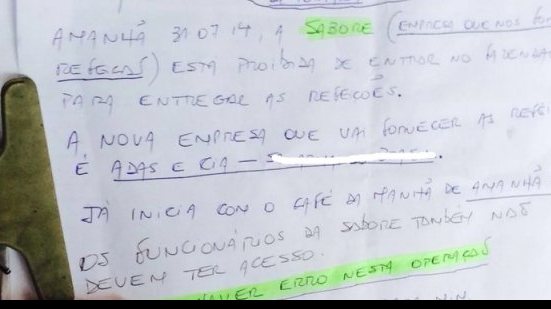 AMANHÃ 31 07 14, A SABORE (EMPRESA QUE NOS
REFEICOES) ESTA PROIBIDA DE ENTRAR NO
PARA ENTREGAR AS REFECOES.
A NOVA EMPRESA QUE VAI FORNECER AS
É ADAS E CIA –
JA INICIA COM O CAFÉ DA MANHÃ DE AMANHÃ
OS FUNCIONARIOS DA SABORE TAMBÉM NÃO
DEVEM TER ACESSO.
ERRO NESTA OPERACAO